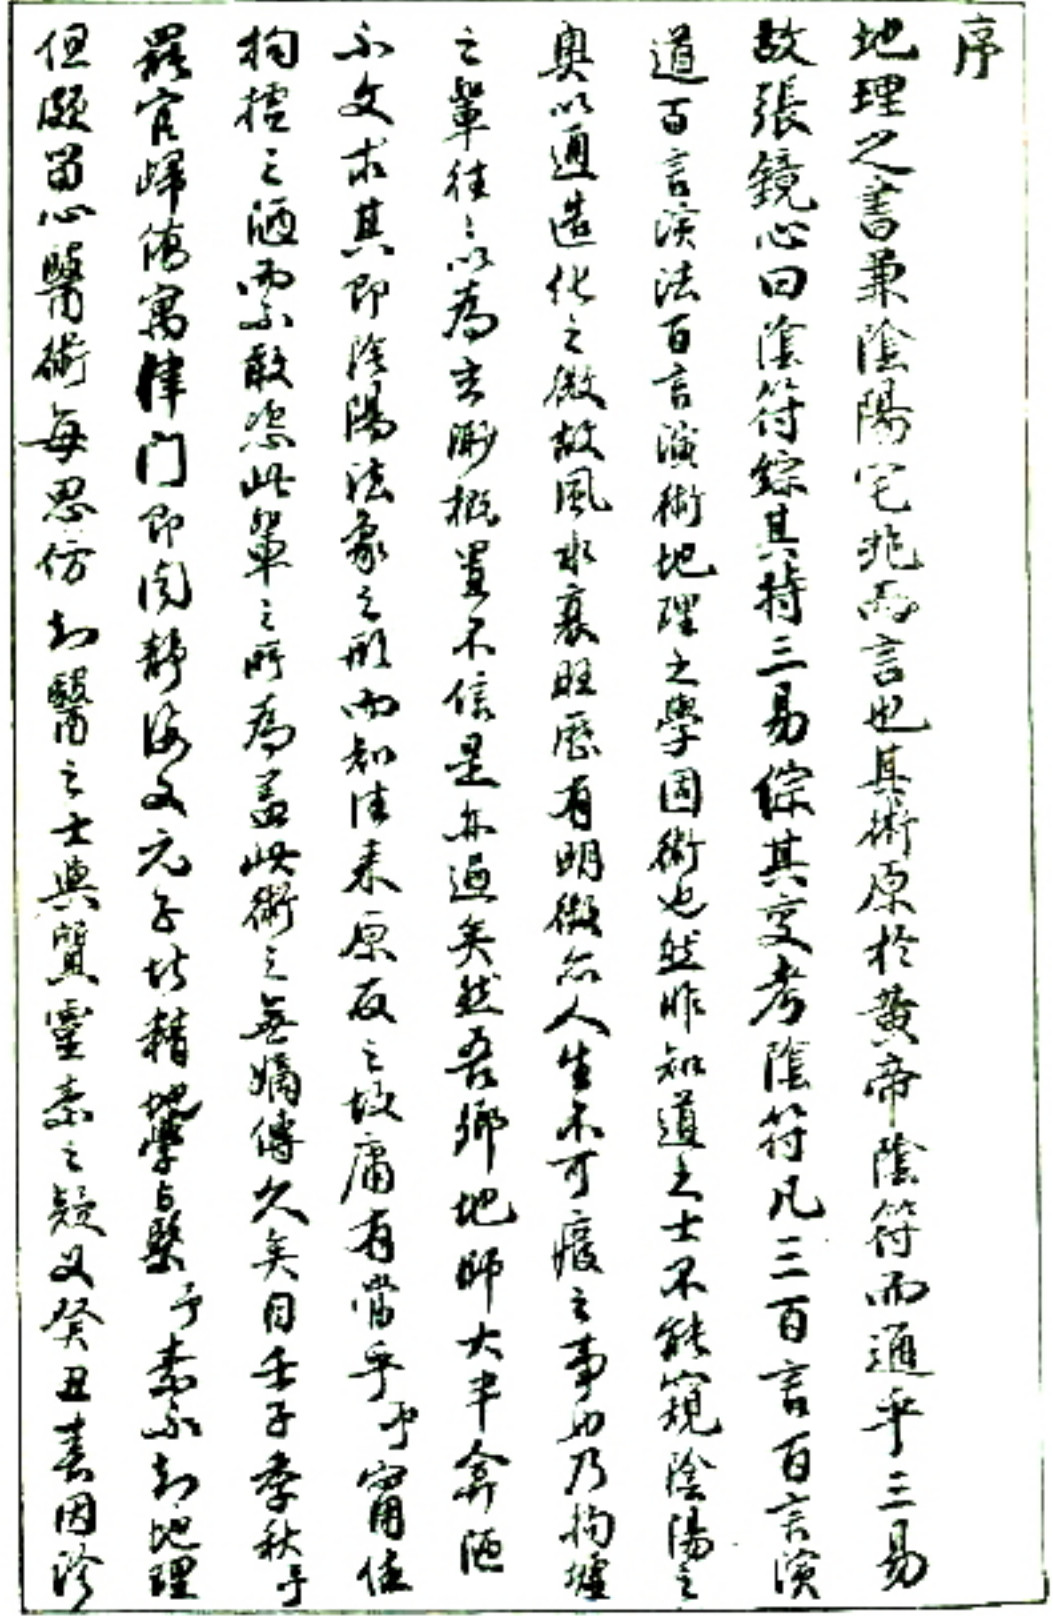 序
地理之書兼陰陽宅兆而言也其術原於黃帝陰符而通乎三易
故張鏡心曰陰符綜其特三易綜其變考陰符凡三百言百言演
道百言演法百言演術地理之學固術也然非知道之士不能窺陰陽之
奧以通造化之微故風水衰旺歷有明徵亦人生不可廢之事也乃拘墟
之輩往之以為玄渺概置不信是亦過矣然吾鄉地師大半弇陋
不文求其即陰陽法象之形而知往來原反之故庸有當乎予甯使
拘墟之陋而不敢恣此輩之所為蓋此術之無嫡傳久矣自壬子季秋予
罷官歸僑寓津門即聞靜海文元子坊精地學與醫予素不知地理
但頗留心醫術每思仿知醫之士與質靈素之疑義癸丑春因診